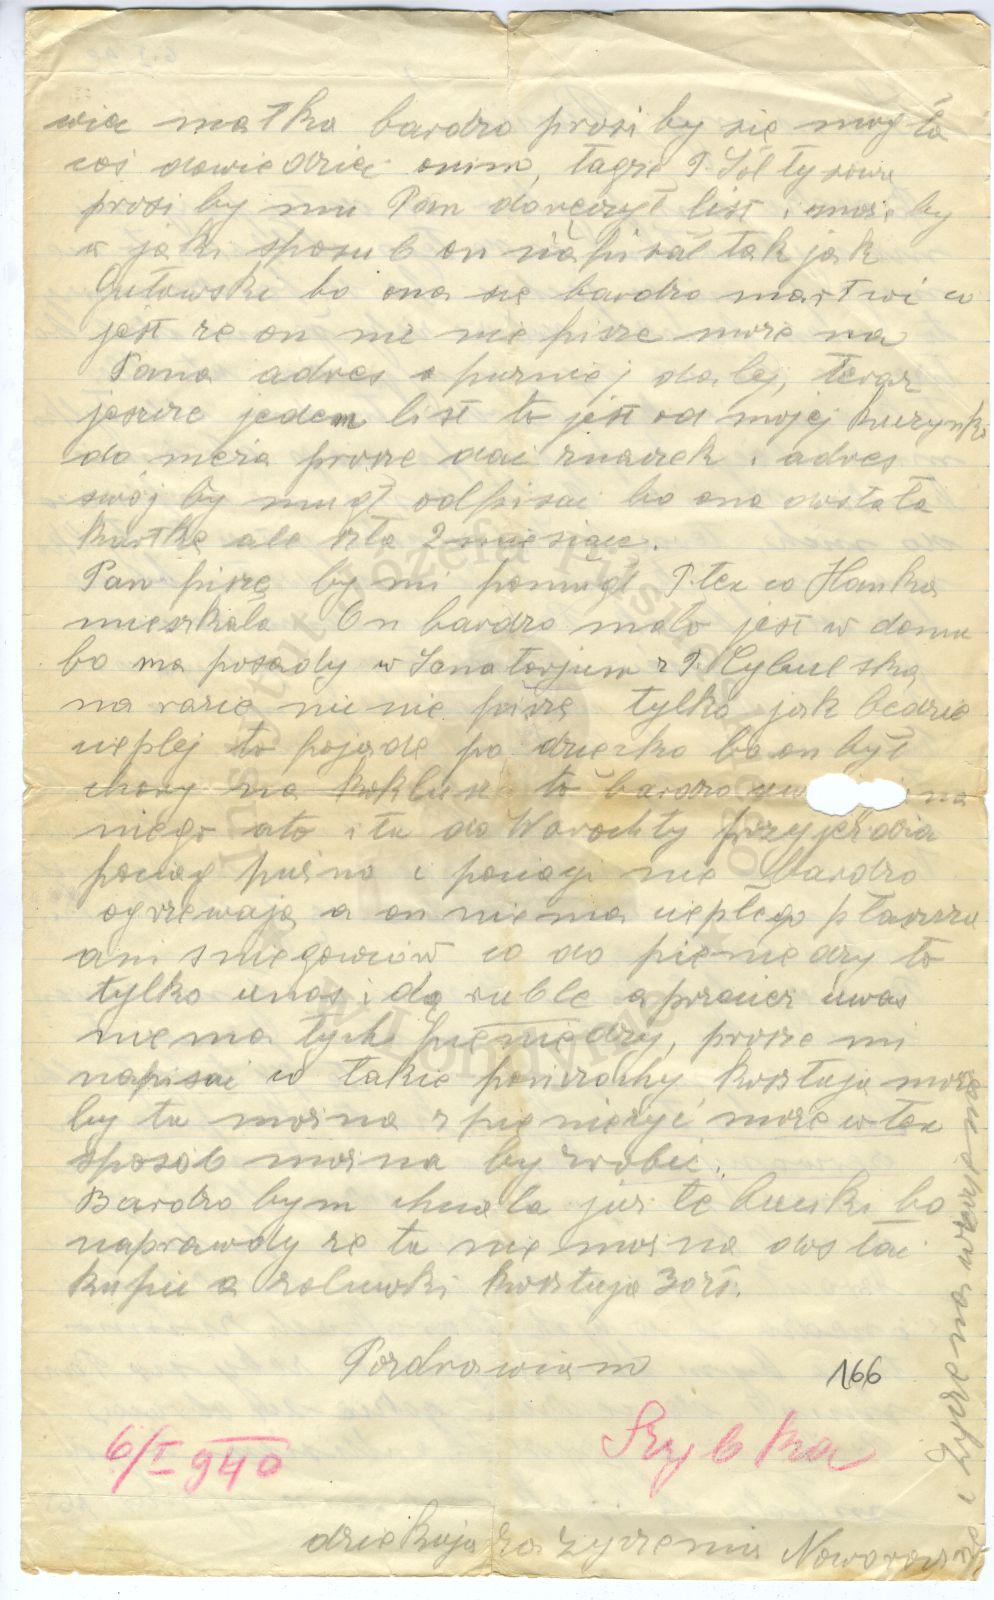 wia matka bardzo prosi by się mogła
coś dowiedzieć onim, tagże P. Sołtysowa
prosi by mu Pan doręczył list i może by
w jaki sposub on napisał tak jak
Gutowski bo ona się bardzo martwi co
jest że on nic nie pisze może na
Pana adres a puzniej dalej, teraz
jeszcze jeden list to jest od mojej kuzynki
do męża prosze dać znaczek i adres
swój by mugł odpisać bo ona dostała
kartkę ale szła 2 miesiące.
Pan piszę by mi pomugł P. ten co Hanka
mieszkała On bardzo mało jest w domu
bo ma posady w Sanatorjum z P. Cybulską
na razie nic nie piszę tylko jak bedzie
cieplej to pojade po dziecko bo on był
chory na koklusz to bardzo na
niego ato i tu do Worochty przyjeżdia
pociąg puzno i pociagi nie bardzo
ogrzewają a on niema ciepłego płaszcza
ani sniegowców co do pieniedzy to
tylko unas idą ruble a przecież uwas
niema tych pieniedzy, prosze mi
napisać co takie ponczochy kosztują może
by tu można spieniężyć może w ten
sposób można by zrobić.
Bardzo bym chciała już te buciki bo
naprawdy że tu nie można dostać
kupić a zeluwki kosztują 30 zł.
Pozdrawiam
166
6/I 940
Szybka
dziekuja za życzenia Noworoczne
i życzenia wzajemna
Instytut Józefa Piłsudskiego w Londynie